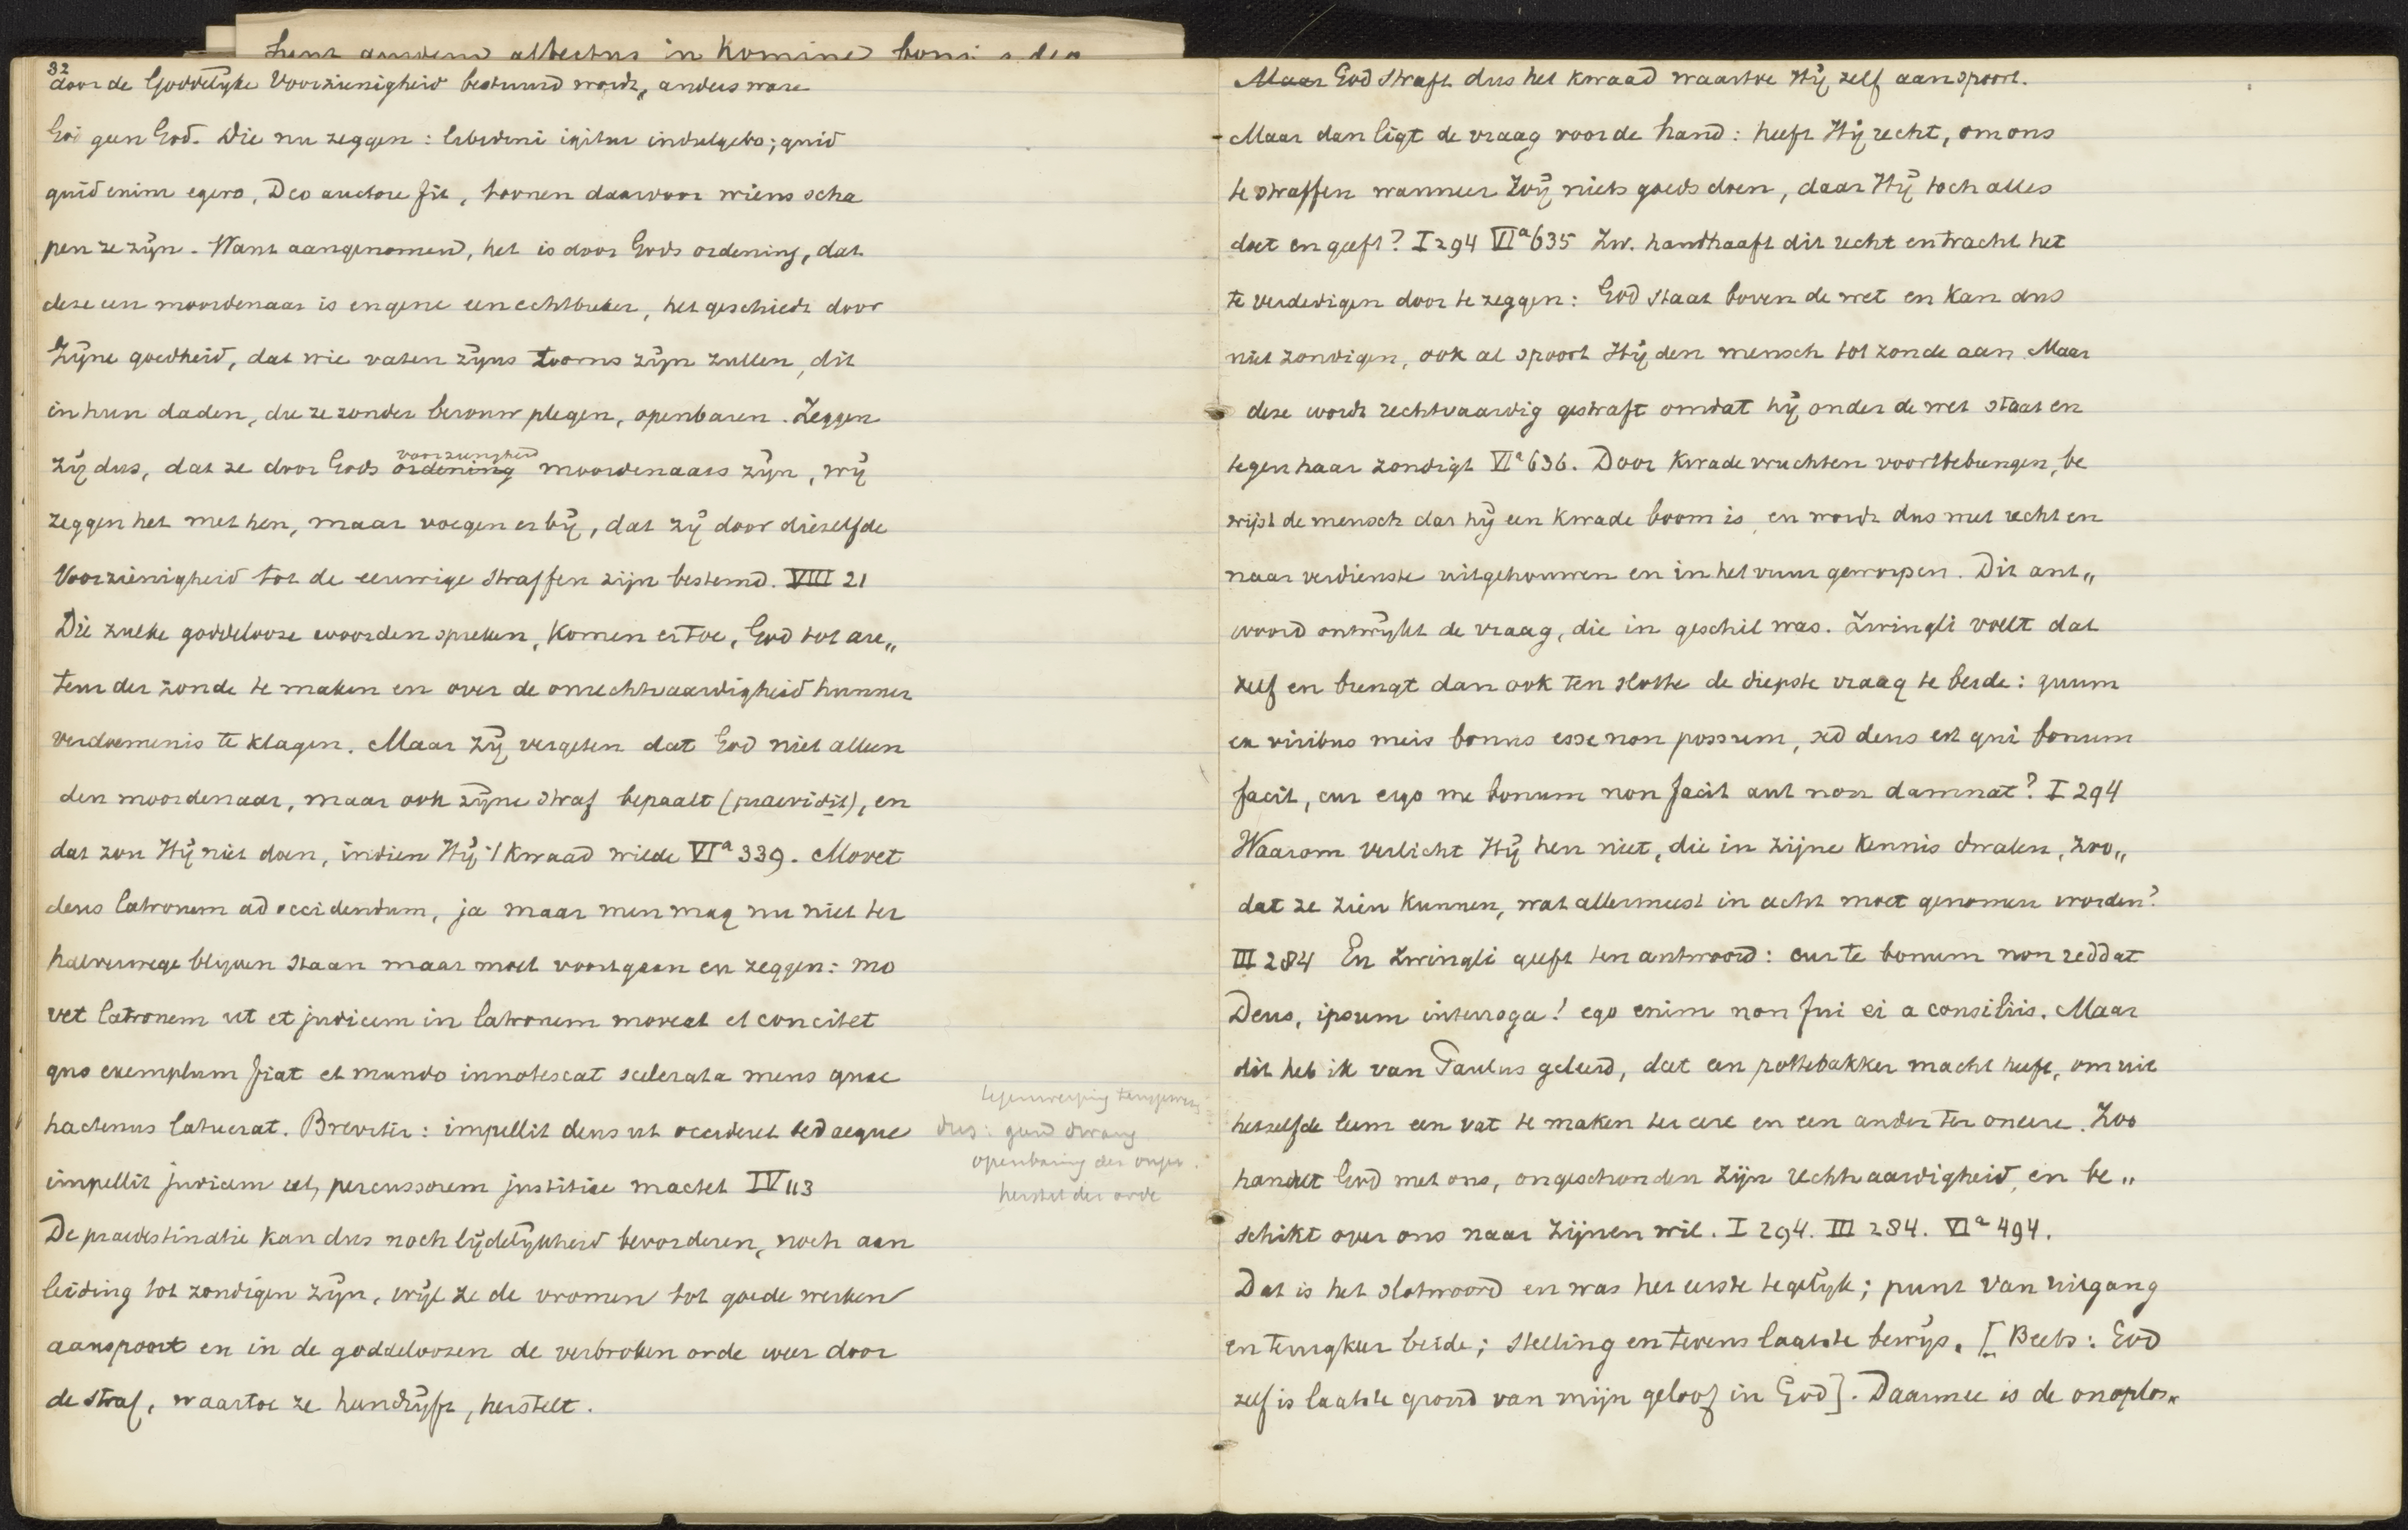 32
door de Goddelyke Voorzienigheid bestuurd wordt„ anders ware
God geen God. Die nu zeggen: libidini igitur indulgebo; quid
quid enim egero, Deo auctore fit, toonen daarvoor wiens scha
pen ze zijn. Want aangenomen, het is door Gods ordening, dat
deze een moordenaar is en gene een echtbreker, het geschiedt door
Zijne goedheid, dat wie vaten zijns toorns zijn zullen, dit
in hun daden, die ze zonder berouw plegen, openbaren. Zeggen
voorzienigheid
Zij dus, dat ze door Gods ordening moordenaars zijn, wij
zeggen het met hen, maar voegen er bij, dat zij door diezelfde
Voorzienigheid tot de eeuwige straffen zijn bestemd. VIII 21
Die zulke goddelooze woorden spreken, komen er toe, God tot auc„
teur der zonde te maken en over de onrechtvaardigheid hunner
verdoemenis te klagen. Maar Zij vergeten dat God niet alleen
den moordenaar, maar ook zijne straf bepaalt (praevidit), en
dat zou Hij niet doen, indien Hij 't kwaad wilde VIa 339. Movet
deus latronem ad occidendum, ja maar men mag nu niet ter
halverwege blijven staan maar moet voortgaan en zeggen: mo
vet latronem ut et judicem in latronem moveat et concitet
quo exemplum fiat et mundo innotescat scelerata mens quae
hactenus latuerat. Breviter: impellit deus ut occideret sed aeque
impellit judicem ut, percussorem justitiae mactet IV 113
De praedestinatie kan dus noch lijdelijkheid bevorderen, noch aan
leiding tot zondigen zijn, wijl ze de vromen tot goede werken
aanspoort en in de goddeloozen de verbroken orde weer door
de straf, waartoe ze hen drijft, herstelt.
tegenwerping
dus: goed dwang
openbaring der
herstel der orde
Maar God straft dus het kwaad waartoe Hij zelf aanspoort.
- Maar dan ligt de vraag voor de hand: heeft Hij recht, om ons
te straffen wanneer Wij niets goeds doen, daar Hij toch alles
doet en geeft? I 294 VIa 635 Zw. handhaaft dit recht en tracht het
te verdedigen door te zeggen: God staat boven de wet en kan dus
niet zondigen, ook al spoort Hij den mensch tot zonde aan. Maar
deze wordt rechtvaardig gestraft omdat hij onder de wet staat en
tegen haar zondigt VIa 636. Door kwade vruchten voorttebrengen, be
wijst de mensch dat hij een kwade boom is, en wordt dus met recht en
naar verdienste uitgehouwen en in het vuur geworpen. Dit ant„
woord ontwijkt de vraag, die in geschil was. Zwingli voelt dat
zelf en brengt dan ook ten slotte de diepste vraag te berde: quum
ex viribus meis bonus esse non possum, sed deus est qui bonum
facit, cur ergo me bonum non facit aut non damnat? I 294
Waarom verlicht Hij hen niet, die in zijne kennis dwalen, zoo„
dat ze zien kunnen, wat allermeest in acht moet genomen worden?
III 284 En Zwingli geeft ten antwoord: cur te bonum non reddat
Deus, ipsum interroga! ego enim non fui ei a consiliis. Maar
dit heb ik van Paulus geleerd, dat een pottebakker macht heeft, om uit
hetzelfde leem een vat te maken ter eere en een ander ter oneere. Zoo
handelt God met ons, ongeschonden zijn rechtvaardigheid, en be„
schikt over ons naar zijnen wil. I 294. III 284. VIa 494.
Dat is het slotwoord en was het eerste tegelijk; punt van uitgang
en terugkeer beide; stelling en tevens laatste bewijs. [Beets: God
zelf is laatste grond van mijn geloof in God]. Daarmee is de onoplos„